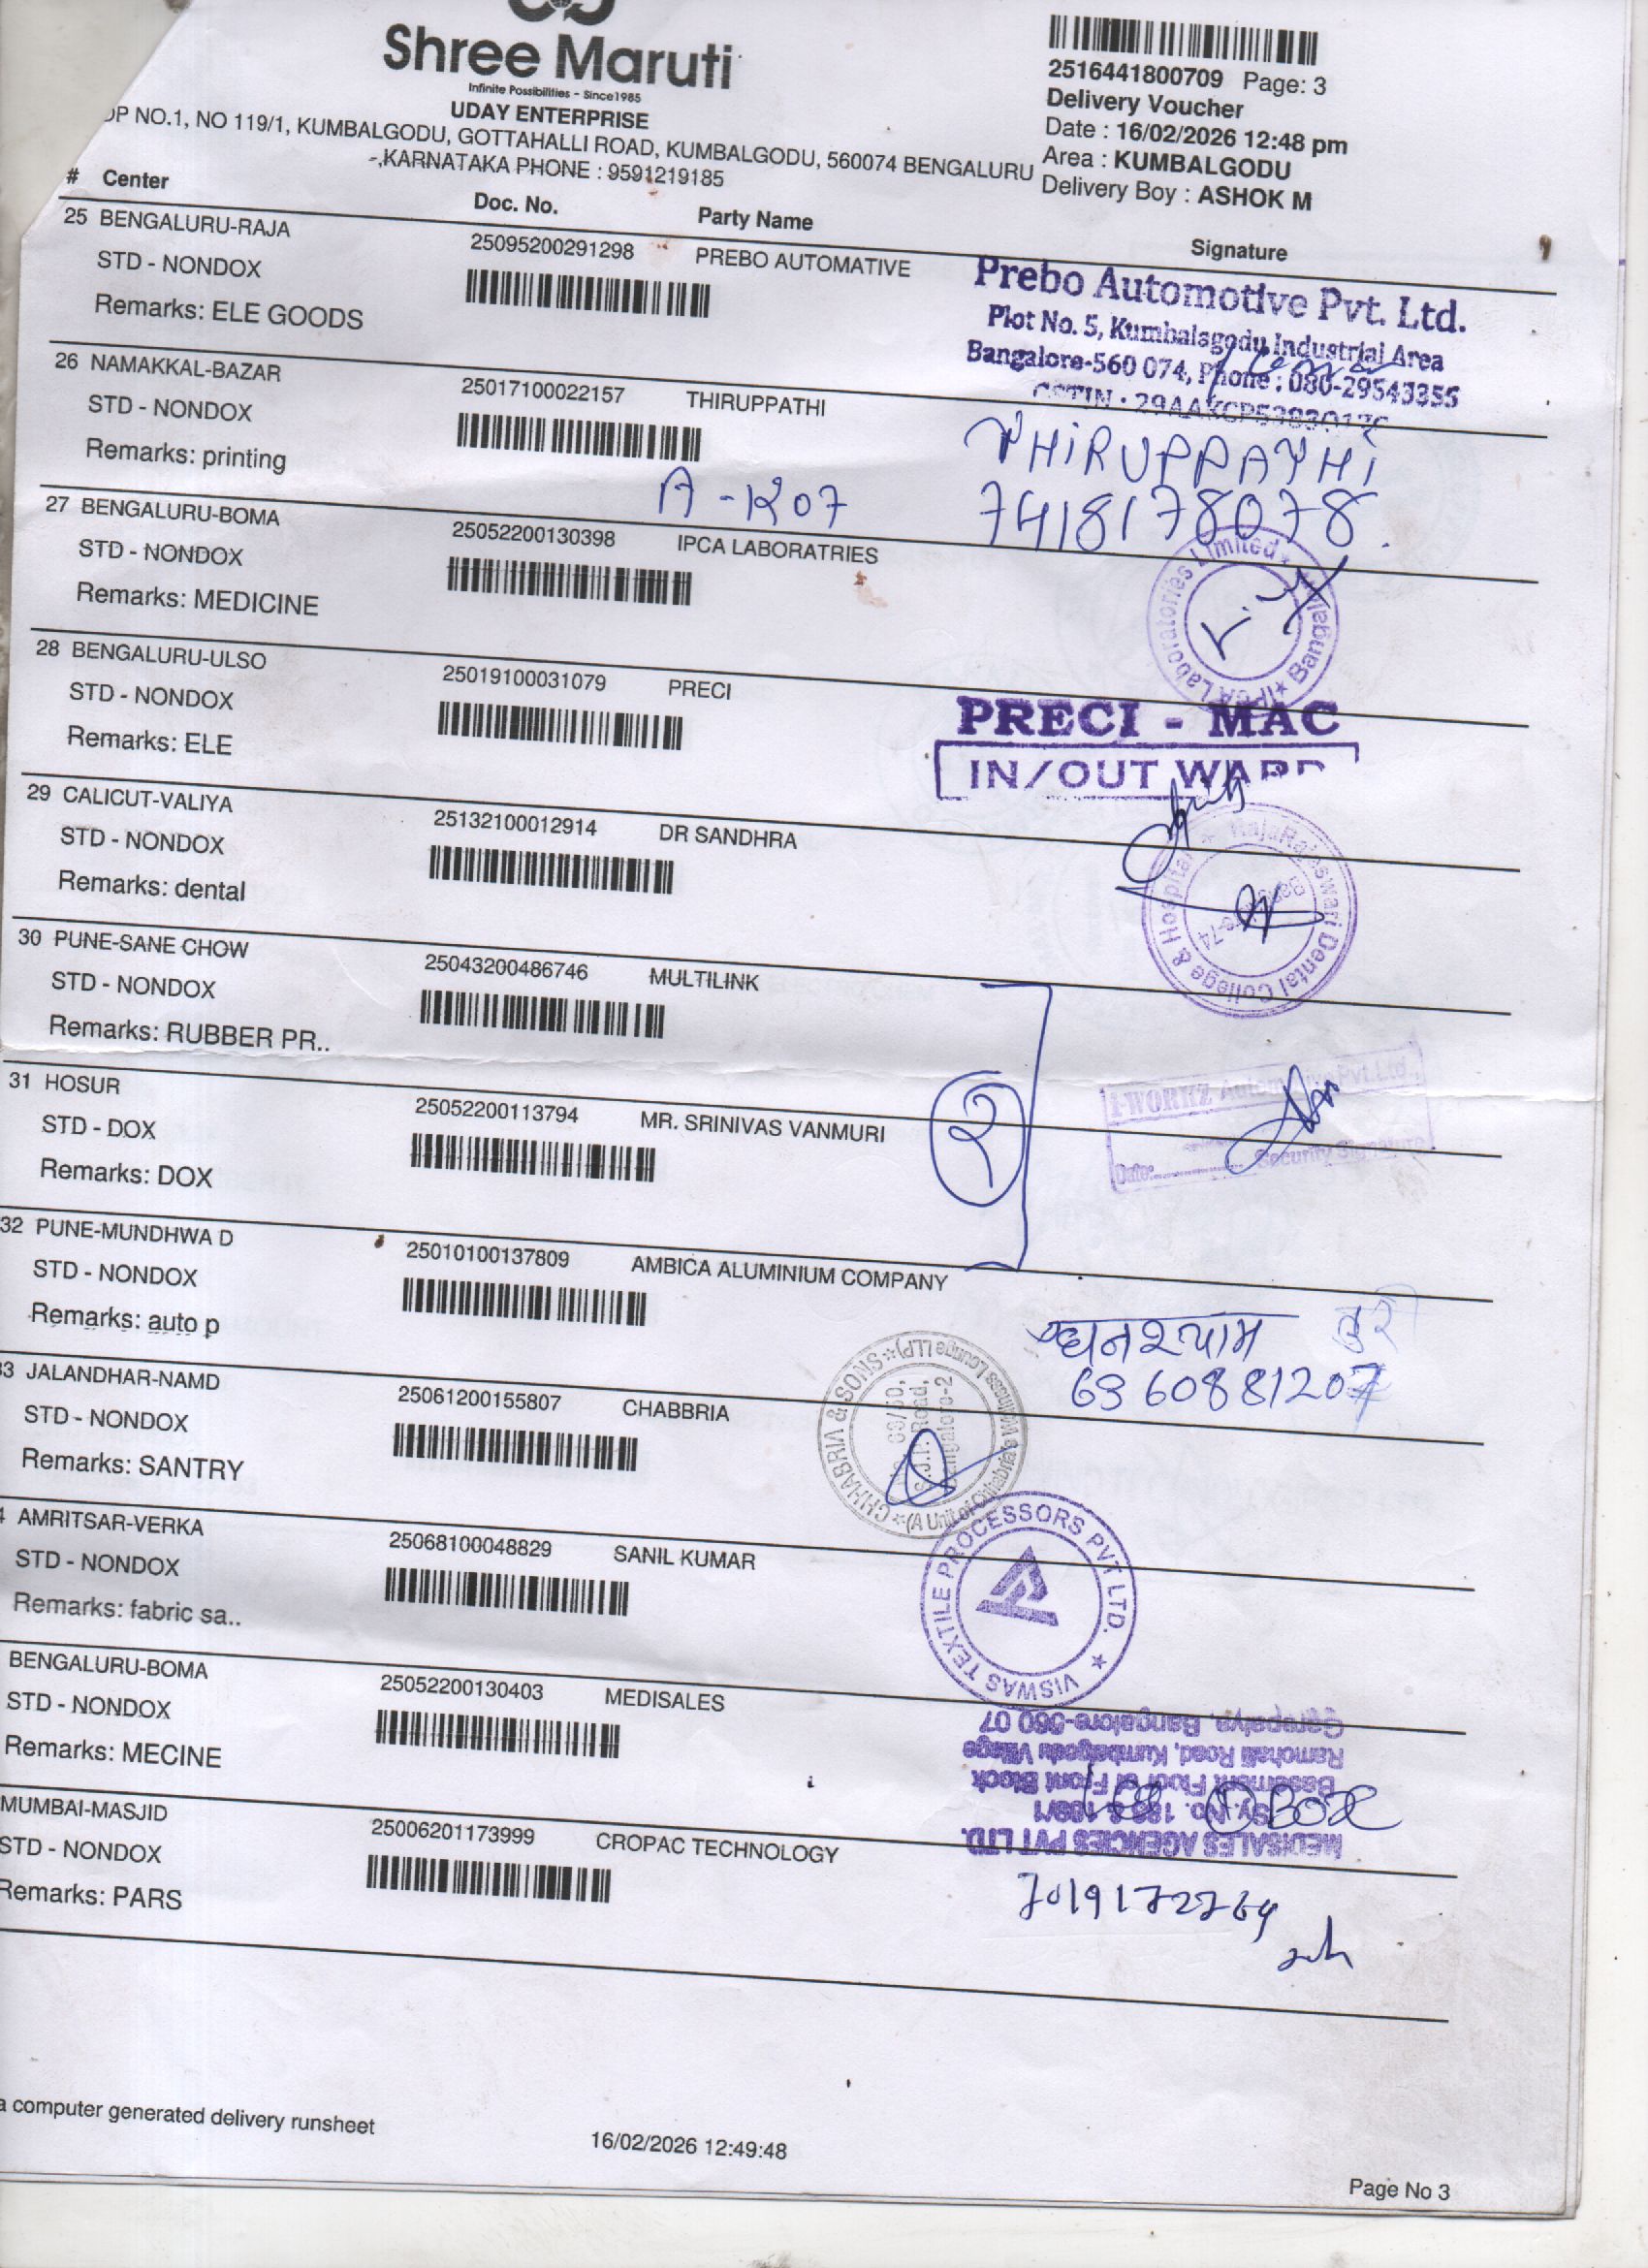 Shree Maruti
Infinite Possibilities - Since1985
UDAY ENTERPRISE
OP NO.1, NO 119/1, KUMBALGODU, GOTTAHALLI ROAD, KUMBALGODU, 560074 BENGALURU
-,KARNATAKA PHONE : 9591219185
2516441800709 Page: 3
Delivery Voucher
Date : 16/02/2026 12:48 pm
Area : KUMBALGODU
Delivery Boy : ASHOK M
# Center Doc. No. Party Name Signature
25 BENGALURU-RAJA 25095200291298 PREBO AUTOMATIVE
STD - NONDOX
Remarks: ELE GOODS
Prebo Automotive Pvt. Ltd.
Plot No. 5, Kumbalagodu Industrial Area
Bangalore-560 074, Phone : 080-29543355
26 NAMAKKAL-BAZAR 25017100022157 THIRUPPATHI
STD - NONDOX
Remarks: printing
THIRUPPATHI
7418178078.
A - K07
27 BENGALURU-BOMA 25052200130398 IPCA LABORATRIES
STD - NONDOX
Remarks: MEDICINE
IPCA Laboratories Limited * Bangalore *
28 BENGALURU-ULSO 25019100031079 PRECI
STD - NONDOX
Remarks: ELE
PRECI - MAC
IN/OUT WARD
29 CALICUT-VALIYA 25132100012914 DR SANDHRA
STD - NONDOX
Remarks: dental
RajaRajeswari Dental College & Hospital *
Bangalore-74
30 PUNE-SANE CHOW 25043200486746 MULTILINK
STD - NONDOX
Remarks: RUBBER PR..
31 HOSUR 25052200113794 MR. SRINIVAS VANMURI
STD - DOX
Remarks: DOX
२
I-WORKZ Automotive Pvt.Ltd.,
Date: Security Signature
32 PUNE-MUNDHWA D 25010100137809 AMBICA ALUMINIUM COMPANY
STD - NONDOX
Remarks: auto p
घनश्याम
6360881207
33 JALANDHAR-NAMD 25061200155807 CHABBRIA
STD - NONDOX
Remarks: SANTRY
CHHABRIA & SONS
(A Unit of Chhabria's Wellness Lounge LLP)
S.J.P. Road,
Bangalore-2
4 AMRITSAR-VERKA 25068100048829 SANIL KUMAR
STD - NONDOX
Remarks: fabric sa..
VISWAS TEXTILE PROCESSORS PVT LTD. *
BENGALURU-BOMA 25052200130403 MEDISALES
STD - NONDOX
Remarks: MECINE
MEDISALES AGENCIES PVT LTD.
Sy. No. 183 & 189/1
Basement Floor of Front Block
Ramohalli Road, Kumbalgodu Village
Bangalore-560 07
① BOX
MUMBAI-MASJID 25006201173999 CROPAC TECHNOLOGY
STD - NONDOX
Remarks: PARS
7019172764
a computer generated delivery runsheet
16/02/2026 12:49:48
Page No 3